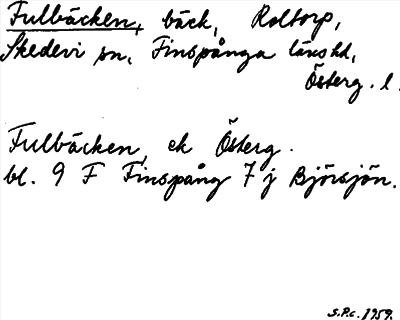 Fulbäcken, bäck, Roltorp,
Skedevi sn, Finspånga länshd,
Österg. l.
Fulbäcken, ek Österg.
bl. 9 F Finspång 7 j Björsjön.
S.P.c. 1959.